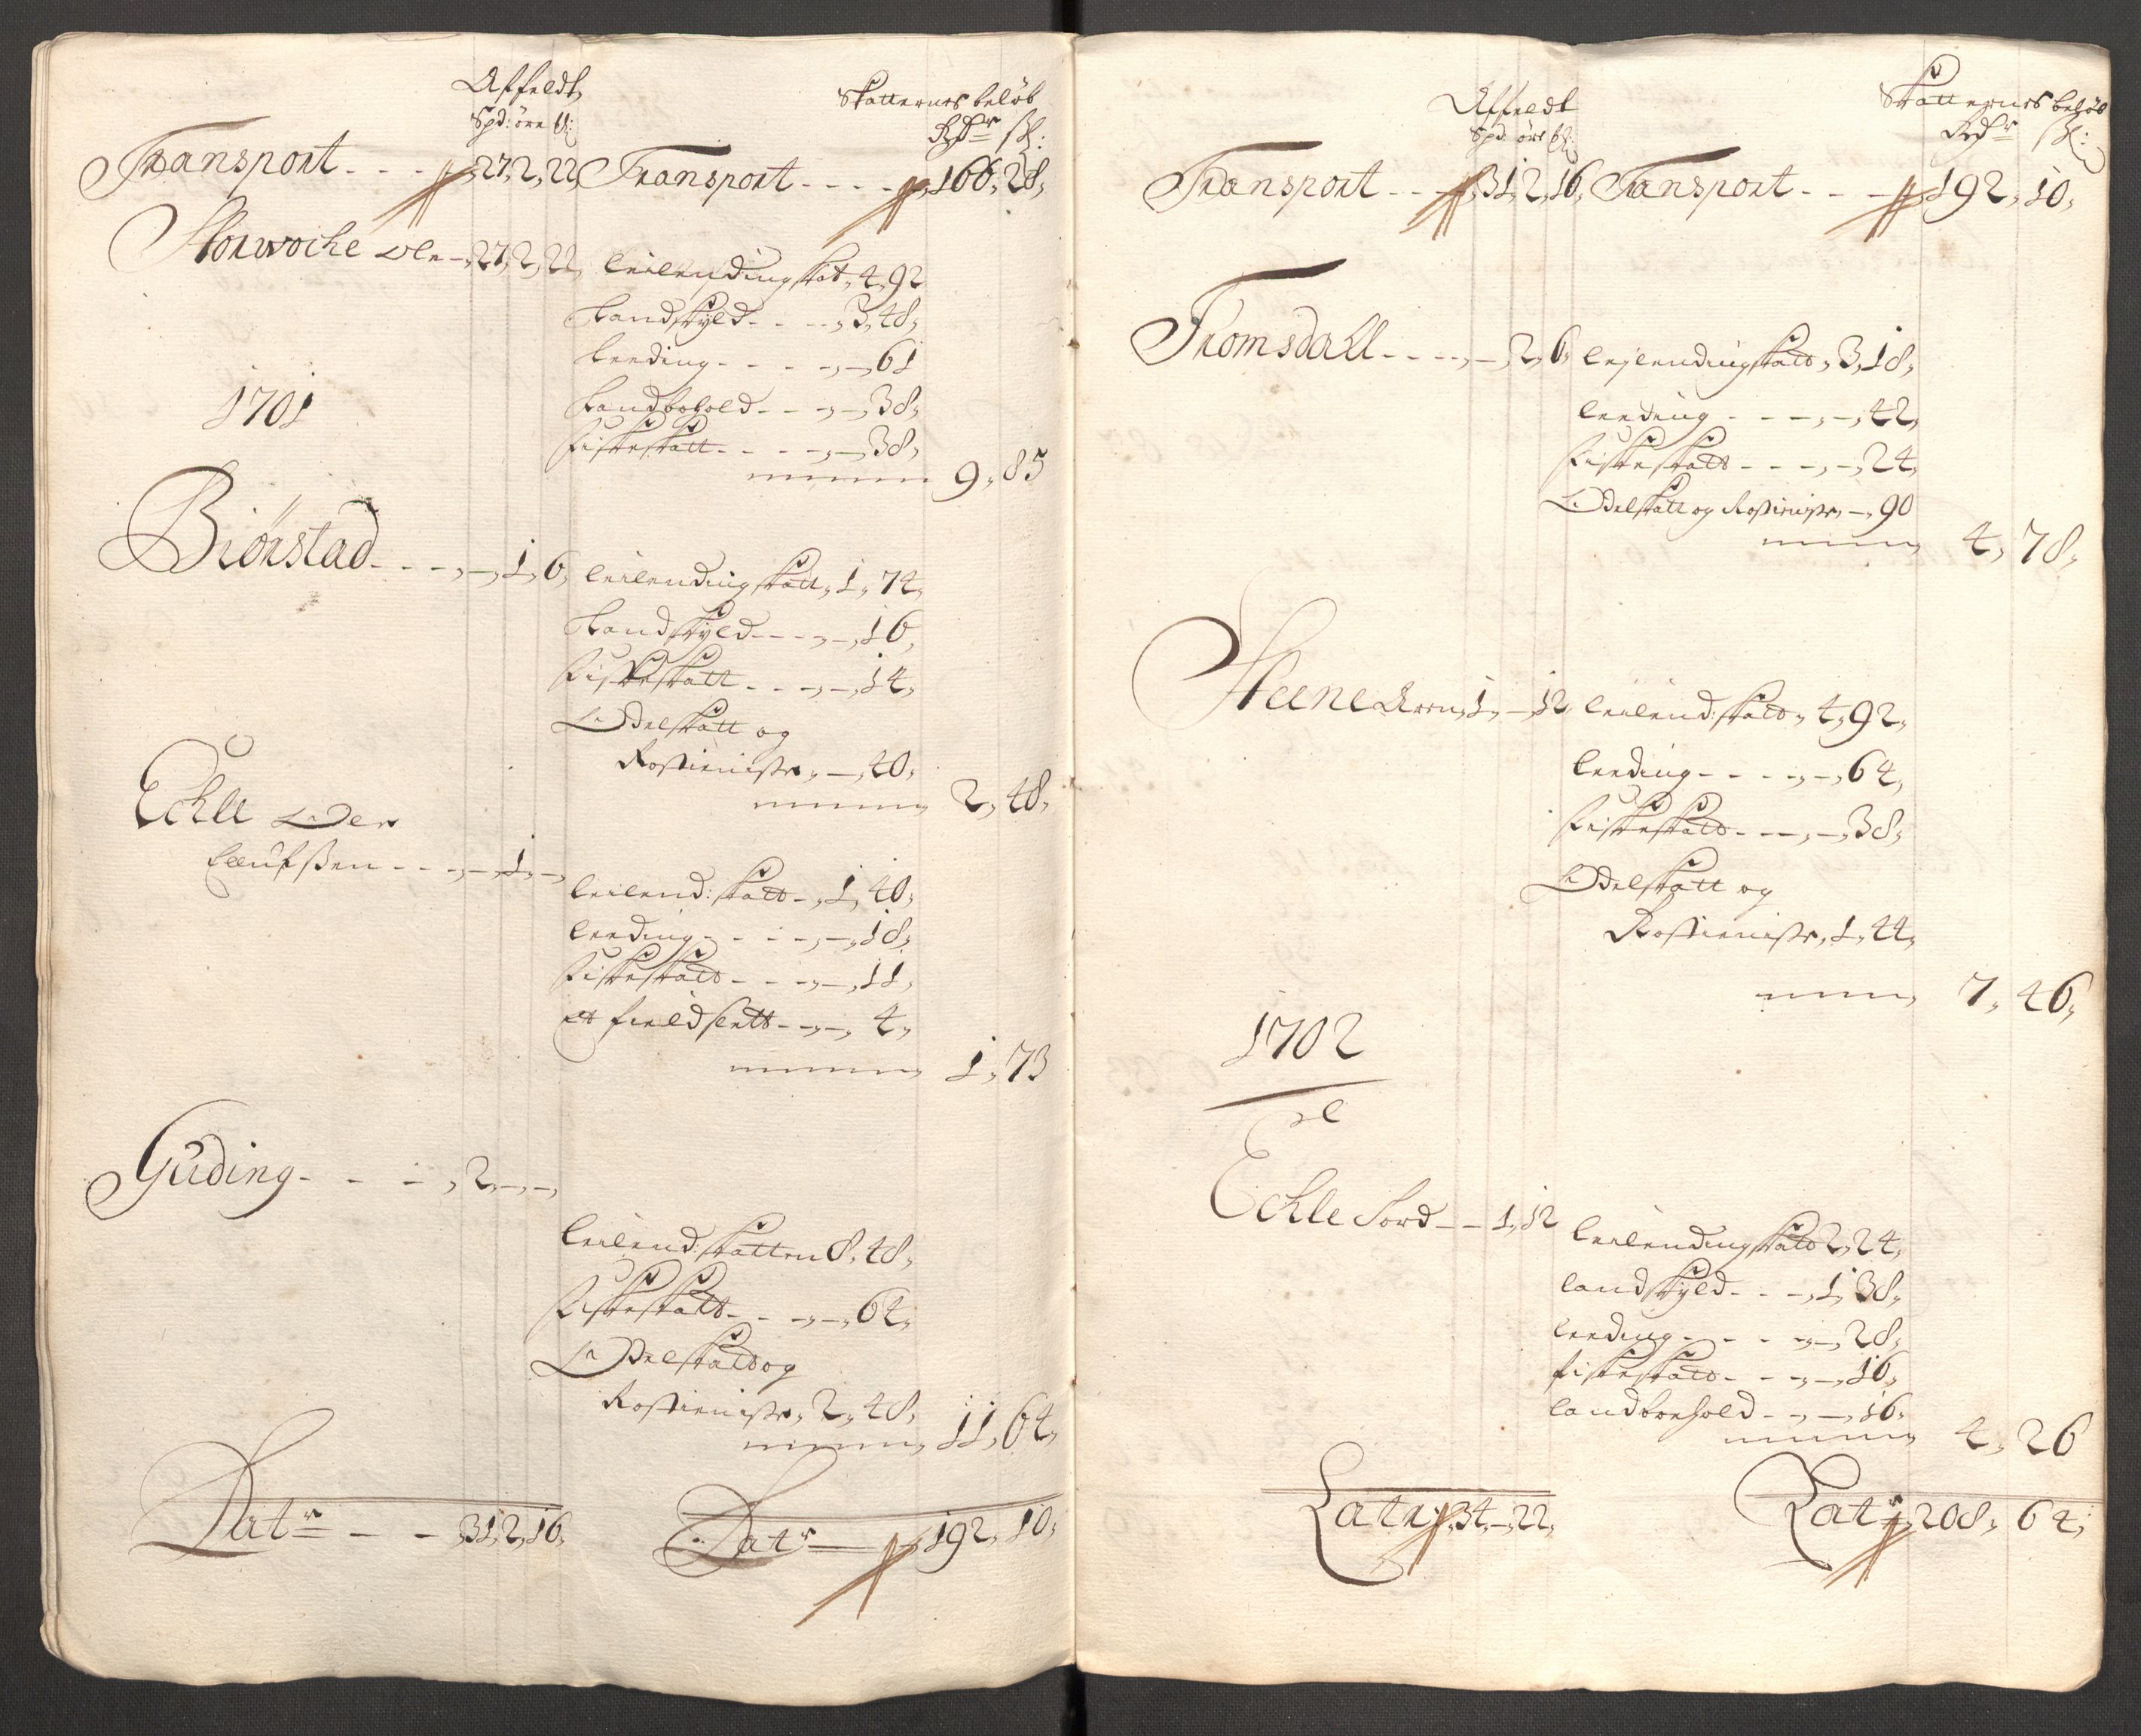 Affeldt
Skatternes beløb
Spd: øre
Rdr sk:
Transport - - - 27, 2, 22, Transport - - - - 166, 28,
Storwoche Ole - 27, 2, 22, leilending skat, 4, 92
Landskyld - - - - 3, 48,
Leeding - - - - - 61
1701
Landbohold - - - - 38,
Fiskeskatt - - - - - 38,
9, 85
Biörstad - - - - 1, 6, leilending skatt, 1, 74,
Landskyld - - - - - 16,
Fiskeskatt - - - - - 14,
Odelskatt og
Rostieniste, - 40,
2, 48,
Echle Oder
Ellufssen - - - - 1, -
leilend: skatt -, 1, 40,
leeding - - - - - 18,
Fiskeskatt - - - - 11,
et fieldslett - - - 4,
1, 73
Guding - - - 2, - -
leilend: skatten 8, 48,
Fiskeskatt - - - - 64,
Odelskatt og
Rostieniste, 2, 48,
11, 64,
Latr - - - 31, 2, 16,
Latr 192, 10,
Affeldt
Skatternes beløb
Spd: øre
Rdr sk:
Transport - - - 31, 2, 16, Tansport - - - 192, 10,
Tromsdall - - - - - 2, 6, leilending skatt, 3, 18,
leeding - - - - - 42,
Fiskeskatt - - - - 24,
Odelskatt og Rostieniste - 90
4, 78,
Steene 1, - 12, leilend: skatt, 4, 92,
leeding - - - - - 64,
Fiskeskatt - - - - 38,
Odelskatt og
Rostieniste, 1, 44,
7, 46,
1702
Echle - - 1, 12
leilending skatt 2, 24,
landskyld - - - 1, 38,
leeding - - - - - 28,
fiskeskatt - - - - 16,
landboehold - - - 16,
4, 26
Latr 34, - 22,
Latr 208, 64,